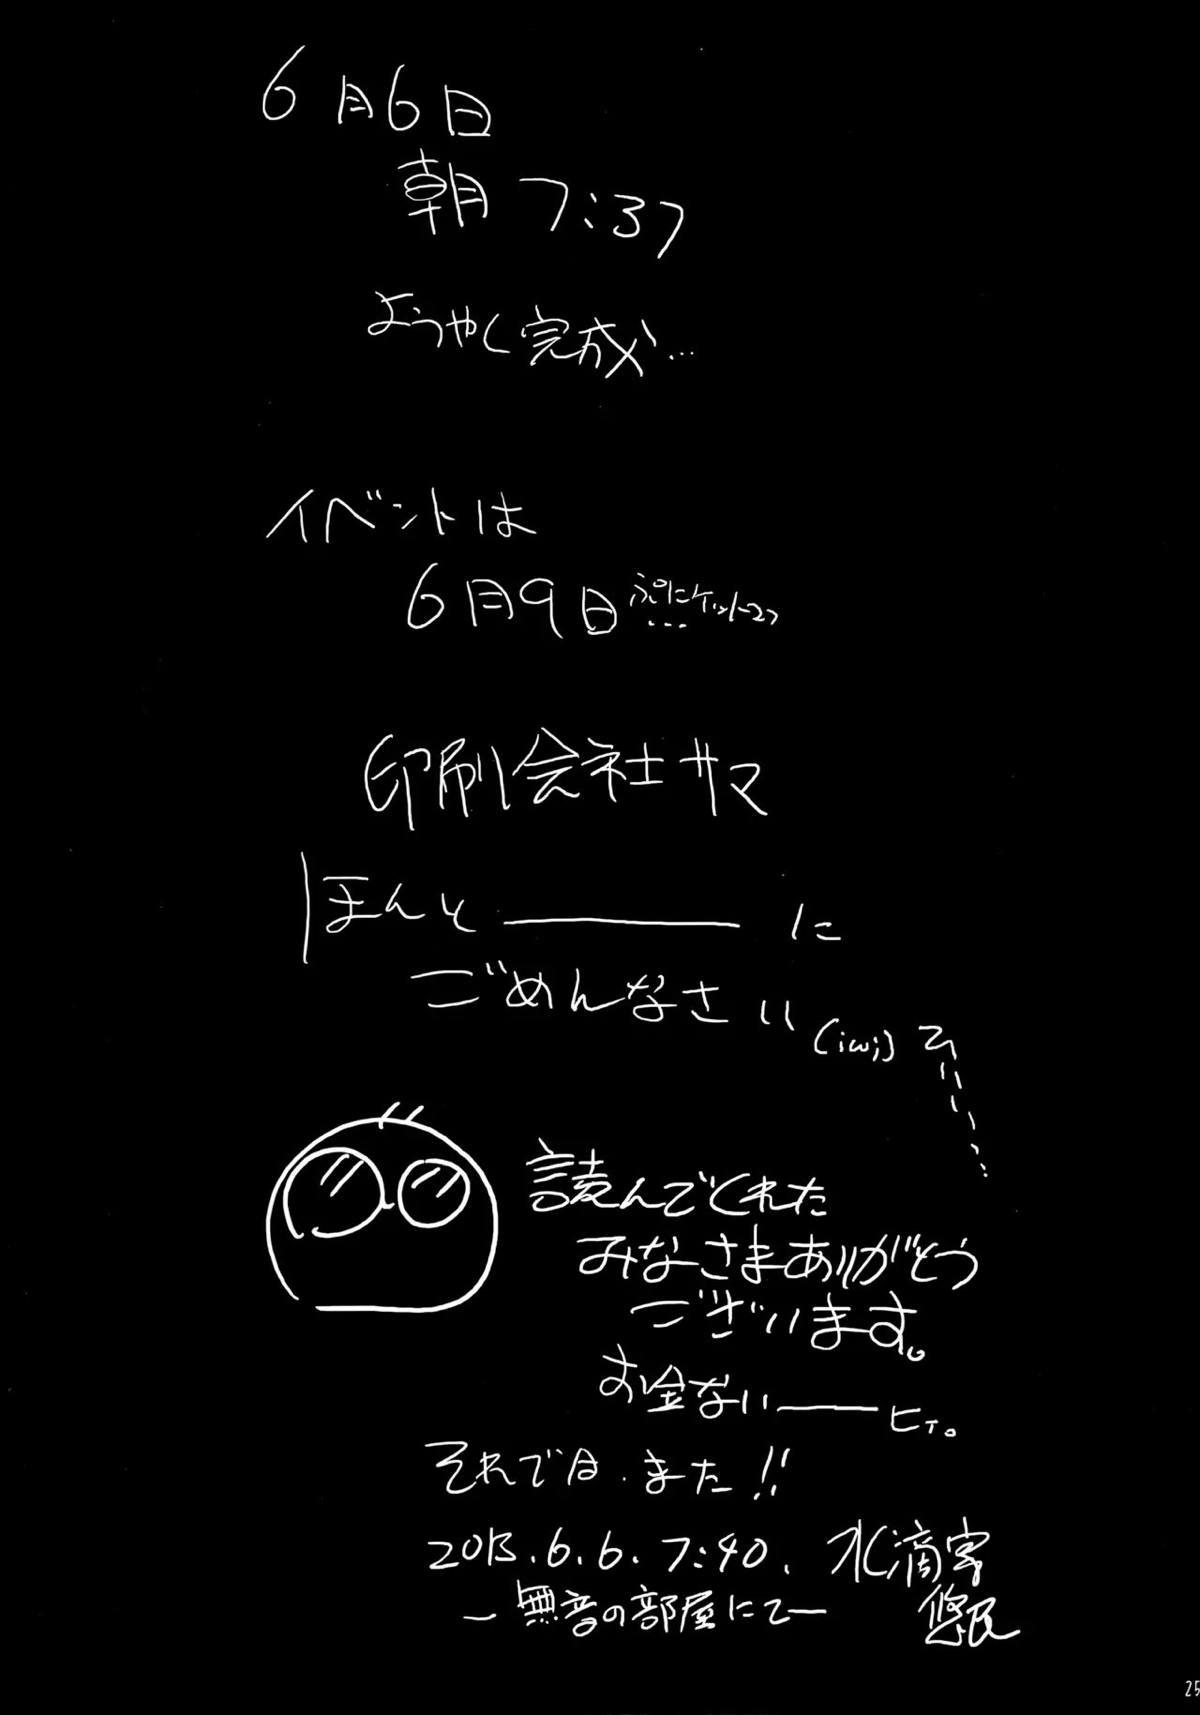 6月6日
朝 7:37
ようやく完成…
イベントは
6月9日 ぷにケット27
…
印刷会社サマ
ほんと――――に
ごめんなさい (iωi)
読んでくれた
みなさまありがとう
ございます。
お金ない――ヒィ。
それでは.また!!
2013.6.6. 7:40. 水滴宮
―無音の部屋にて― 悠民
25